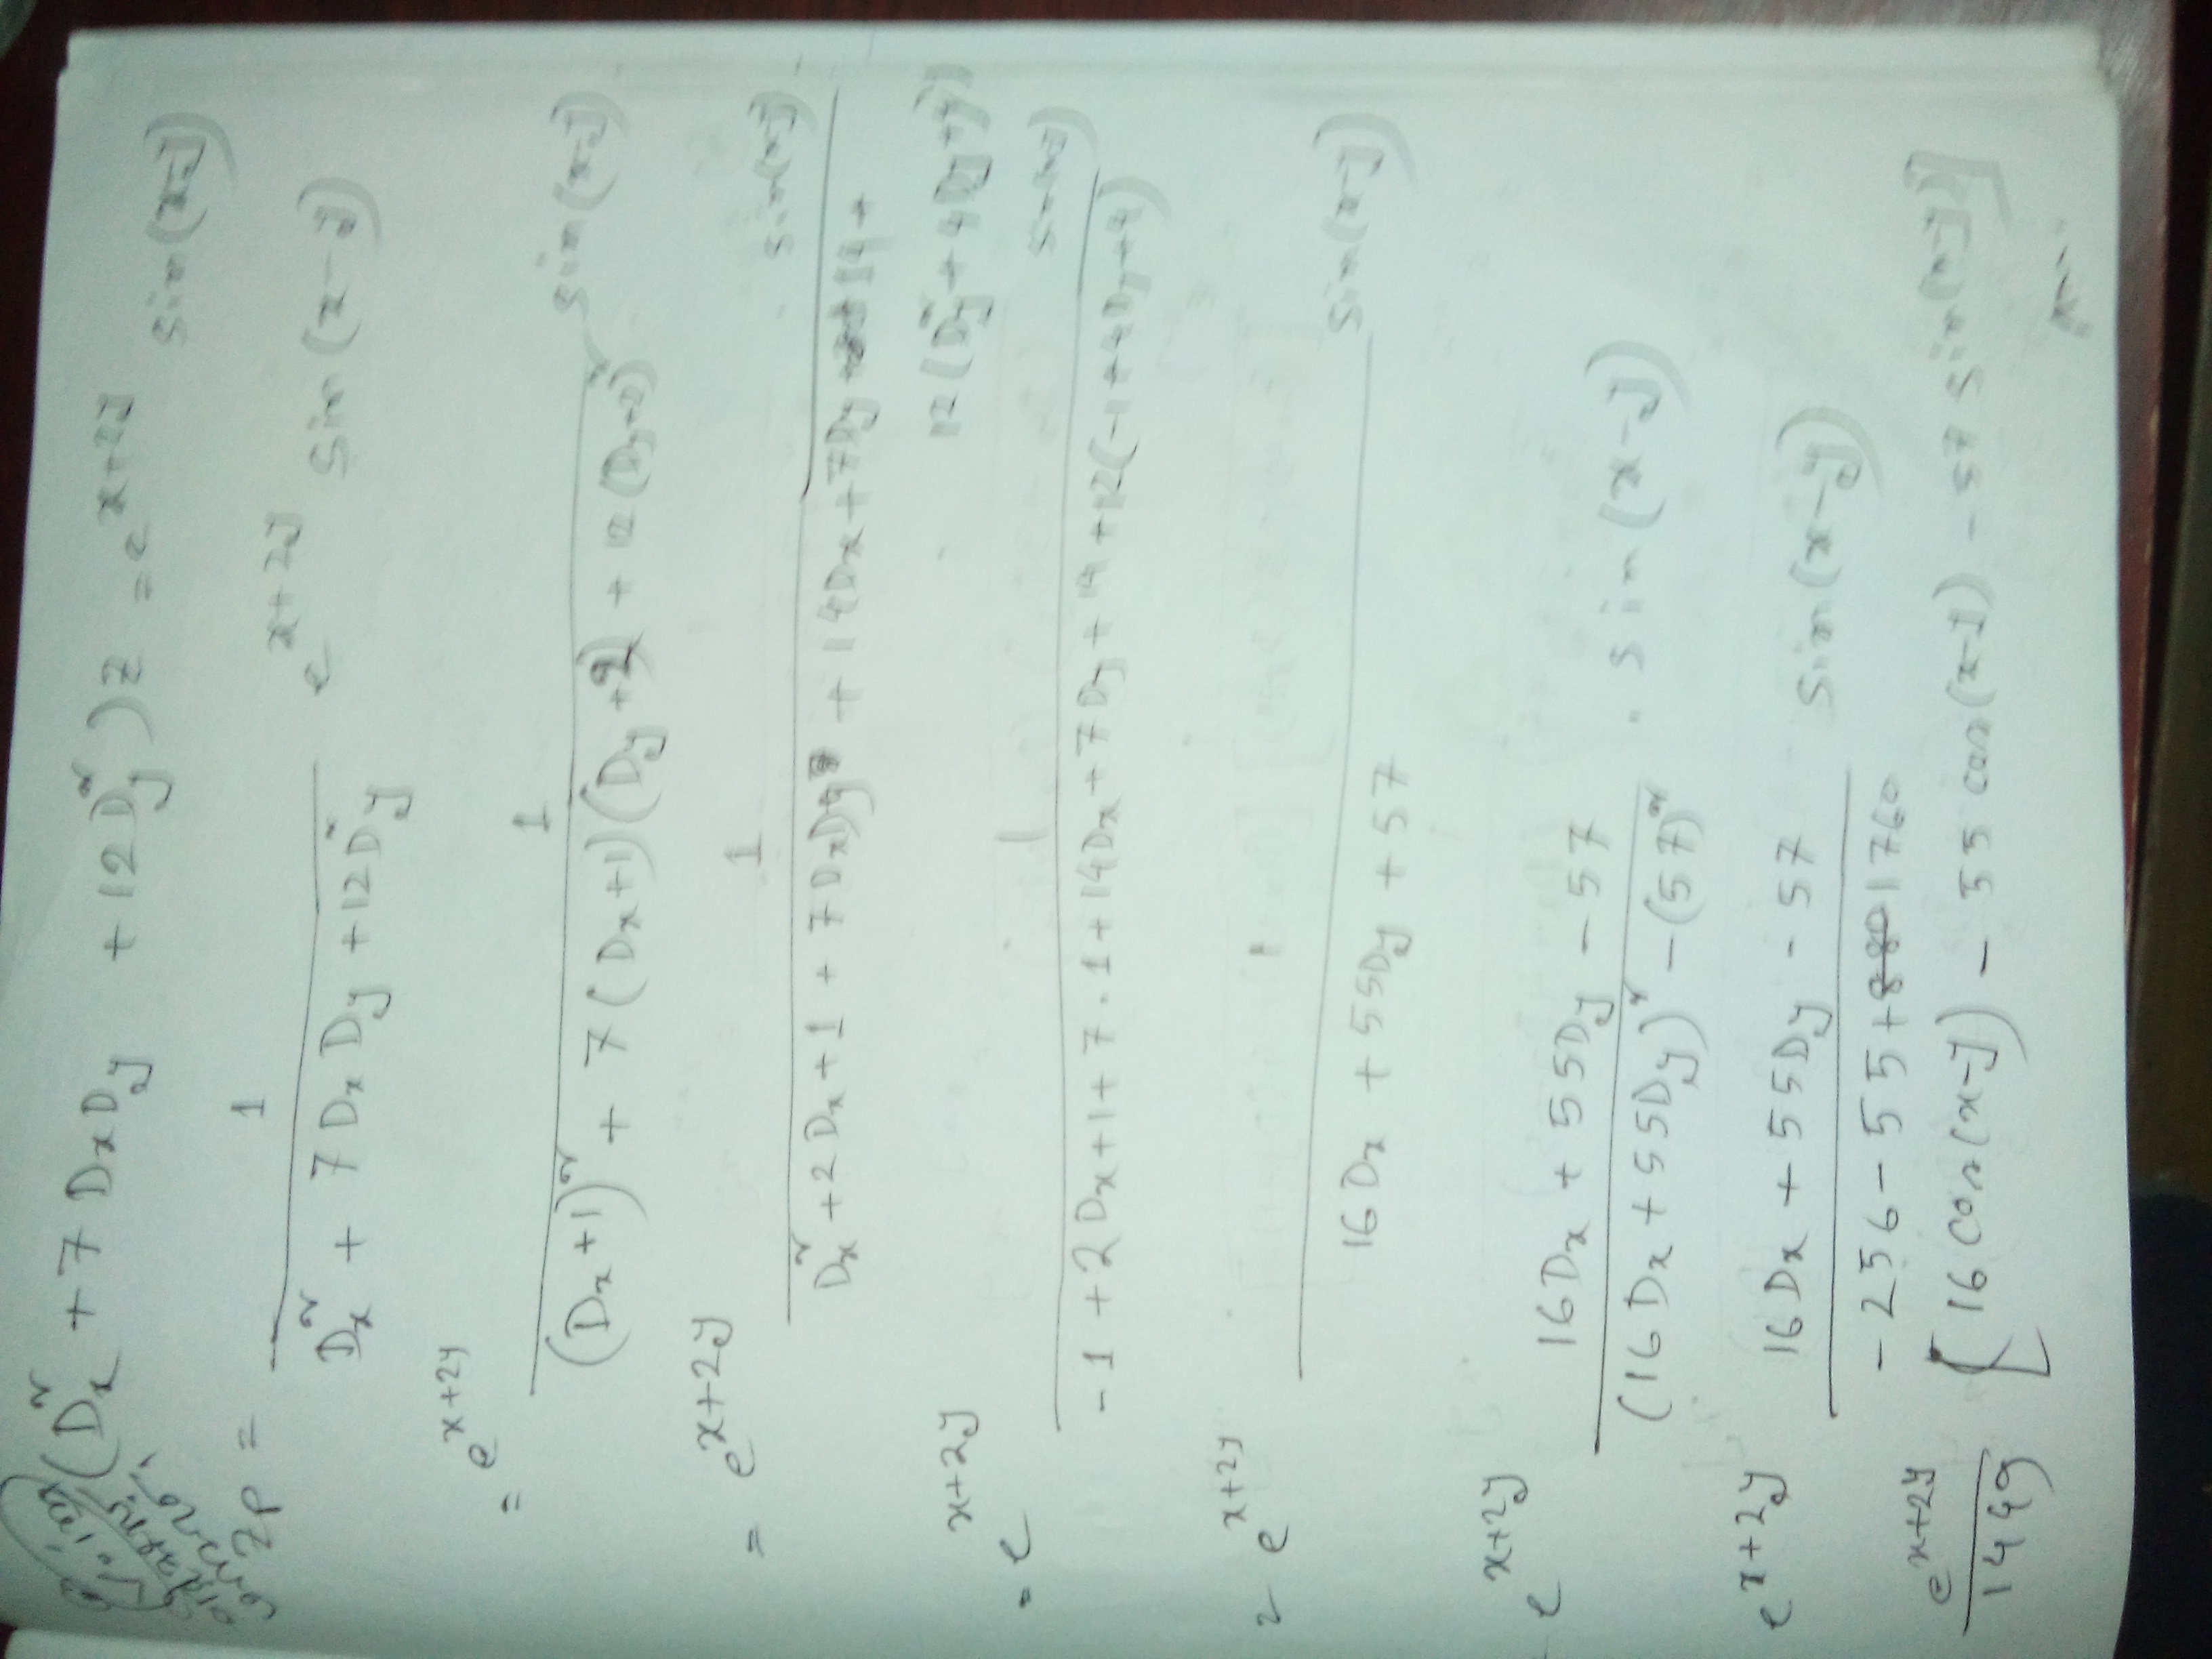 (Dx² + 7DxDy + 12Dy²)z = e^(x+2y) sin(x-y)
zp = 1/(Dx² + 7DxDy + 12Dy²) e^(x+2y) sin(x-y)
= e^(x+2y) 1/((Dx+1)² + 7(Dx+1)(Dy+2) + 12(Dy+2)²) sin(x-y)
= e^(x+2y) 1/(Dx² + 2Dx + 1 + 7DxDy + 14Dx + 7Dy + 14 + 12(Dy² + 4Dy + 4)) sin(x-y)
= e^(x+2y) 1/(-1 + 2Dx + 1 + 7.1 + 14Dx + 7Dy + 14 + 12(-1 + 4Dy + 4)) sin(x-y)
= e^(x+2y) 1/(16Dx + 55Dy + 57) sin(x-y)
e^(x+2y) (16Dx + 55Dy - 57)/((16Dx + 55Dy)² - (57)²) . sin(x-y)
e^(x+2y) (16Dx + 55Dy - 57)/(-256 - 55 + 1760) sin(x-y)
e^(x+2y)/1449 [16 cos(x-y) - 55 cos(x-y) - 57 sin(x-y)]